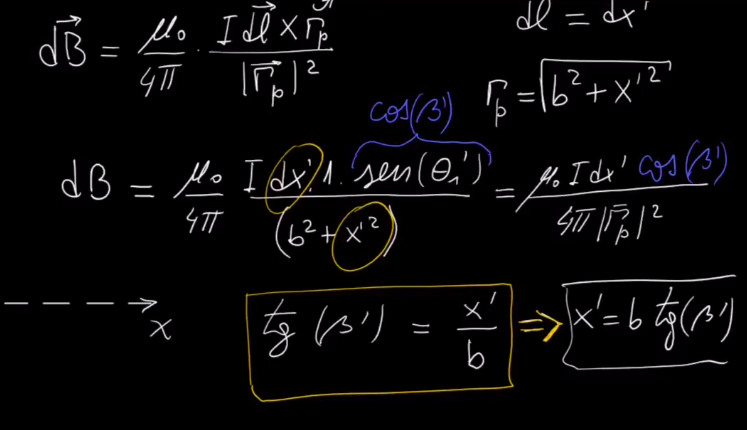 dB⃗ = μ₀/4π · I dl⃗ × r̂p/|r⃗p|²
dl = dx'
rp = √(b² + x'²)
cos(β')
dB = μ₀/4π I dx'.1.sen(θ₁')/(b² + x'²) = μ₀ I dx' cos(β')/4π|r⃗p|²
x
tg(β') = x'/b ⇒ x' = b tg(β')